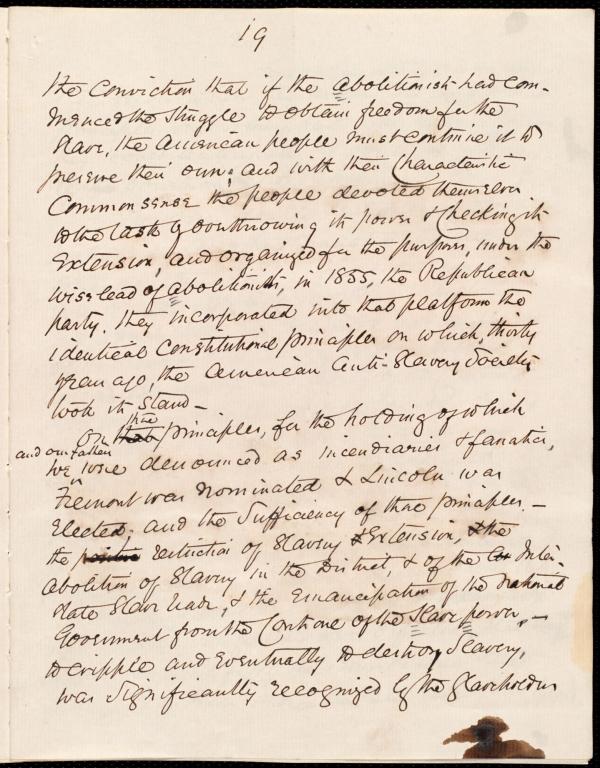 19
the conviction that if the abolitionists had com-
menced the struggle to obtain freedom for the
slave, the American people must continue it to
preserve their own; and with their characteristic
common sense the people devoted themselves
to the task of overthrowing its power & checking its
extension, and organized for the purpose, under the
wise lead of abolitionists, in 1855, the Republican
party. They incorporated into that platform the
identical Constitutional principles on which, thirty
years ago, the American Anti-Slavery Society
took its stand —
On these principles, for the holding of which
and our fathers
we were denounced as incendiaries & fanatics,
Fremont was nominated & Lincoln was
elected; and the sufficiency of those principles —
the restriction of Slavery Extension, the
abolition of Slavery in the District, & of the Inter-
state Slave trade, & the emancipation of the national
Government from the Control of the Slave power, —
to cripple and eventually to destroy Slavery,
was significantly recognized by the slaveholders